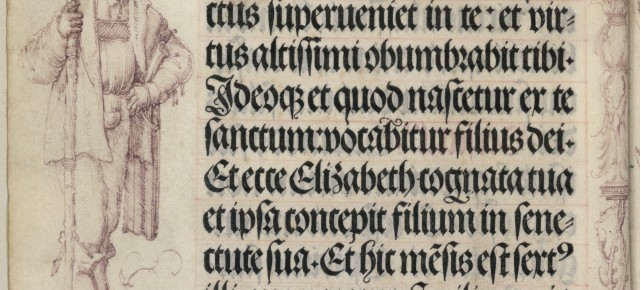 ctus superueniet in te: et vir-
tus altissimi obumbrabit tibi.
Ideoqꝫ et quod nascetur ex te
sanctum: vocabitur filius dei.
Et ecce Elizabeth cognata tua
et ipsa concepit filium in sene-
ctute sua. Et hic mēsis est sextꝰ